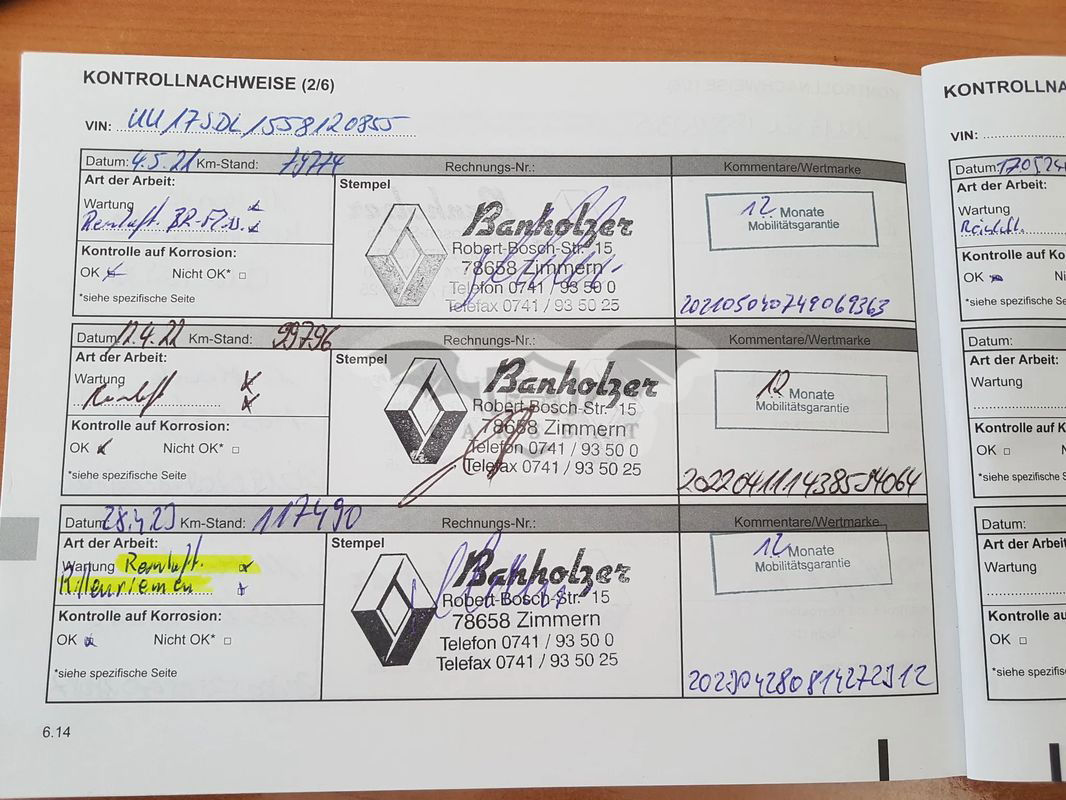 KONTROLLNACHWEISE (2/6)
VIN: UU17SDL1558120855
Datum: 4.5.21 Km-Stand: 79774 Rechnungs-Nr.: Kommentare/Wertmarke
Art der Arbeit:
Wartung
Reinluft. BR-Fl.
Kontrolle auf Korrosion:
OK Nicht OK*
*siehe spezifische Seite
Stempel
Banholzer
Robert-Bosch-Str. 15
78658 Zimmern
Telefon 0741 / 93 50 0
Telefax 0741 / 93 50 25
12 Monate
Mobilitätsgarantie
202105040749069363
Datum: 11.4.22 Km-Stand: 99796 Rechnungs-Nr.: Kommentare/Wertmarke
Art der Arbeit:
Wartung
Reinluft
Kontrolle auf Korrosion:
OK Nicht OK*
*siehe spezifische Seite
Stempel
Banholzer
Robert-Bosch-Str. 15
78658 Zimmern
Telefon 0741 / 93 50 0
Telefax 0741 / 93 50 25
12 Monate
Mobilitätsgarantie
Datum: 28.4.23 Km-Stand: 117490 Rechnungs-Nr.: Kommentare/Wertmarke
Art der Arbeit:
Wartung Reinluft.
Rillenriemen
Kontrolle auf Korrosion:
OK Nicht OK*
*siehe spezifische Seite
Stempel
Banholzer
Robert-Bosch-Str. 15
78658 Zimmern
Telefon 0741 / 93 50 0
Telefax 0741 / 93 50 25
12 Monate
Mobilitätsgarantie
202304280814272912
6.14
KONTROLLNA
VIN:
Datum: 170524
Art der Arbeit:
Wartung
Reinluft.
Kontrolle auf Ko
OK Ni
*siehe spezifisch
Datum:
Art der Arbeit:
Wartung
Kontrolle auf K
OK N
*siehe spezifisc
Datum:
Art der Arbei
Wartung
Kontrolle auf
OK
*siehe spezifis